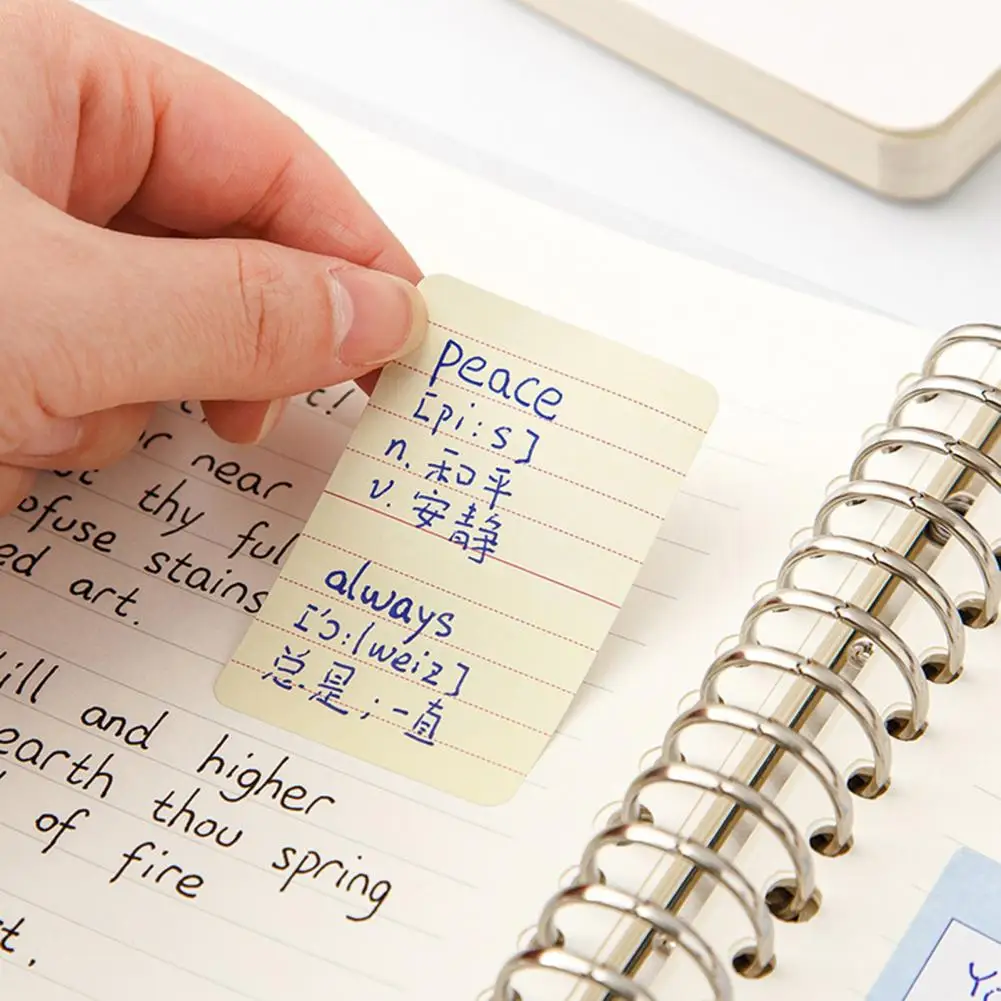 peace
[pi:s]
n. 和平
v. 安静
always
['ɔ:lweiz]
总是；一直
t!
or near
t thy full
ofuse stains
ed art.
ill and higher
earth thou spring
of fire
t.